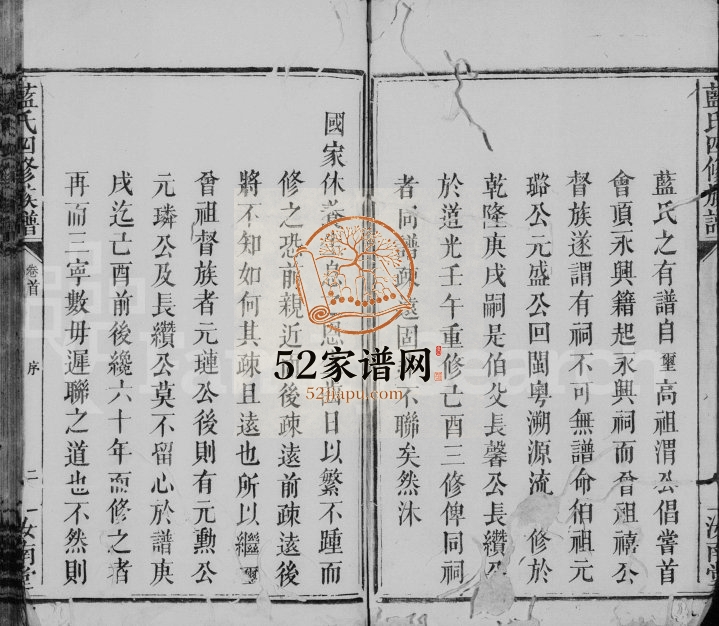 藍氏四修族譜
藍氏之有譜自璽高祖渭公倡嘗首
會頂永興籍起永興祠而曾祖禧公
督族遂謂有祠不可無譜命伯祖元
璐公元盛公回閩粵溯源流 修於
乾隆庚戌嗣是伯父長馨公長纘公
於道光壬午重修己酉三修俾同祠
者同譜疎遠固 不聯矣然沐
汝南堂
國家休養生息 恩 日以繁不踵而
修之恐前親近 後疎遠前疎遠後
將不知如何其疎且遠也所以繼璽
曾祖督族者元璉公後則有元勳公
元璘公及長纘公莫不留心於譜庚
戌迄己酉前後纔六十年而修之者
再而三寧數毋遲聯之道也不然則
藍氏四修族譜
卷首
序
二
汝南堂
52家谱网
52jiapu.com